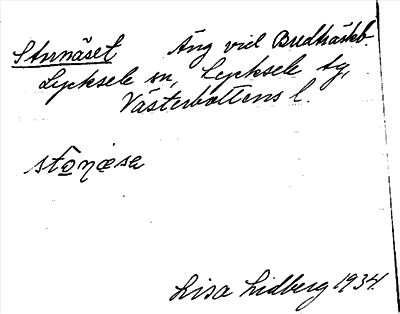 Stunäset Äng vid Brudträskb.
Lycksele sn, Lycksele tg,
Västerbottens l.
sto̲ŋæsa
Lisa Lidberg 1934.